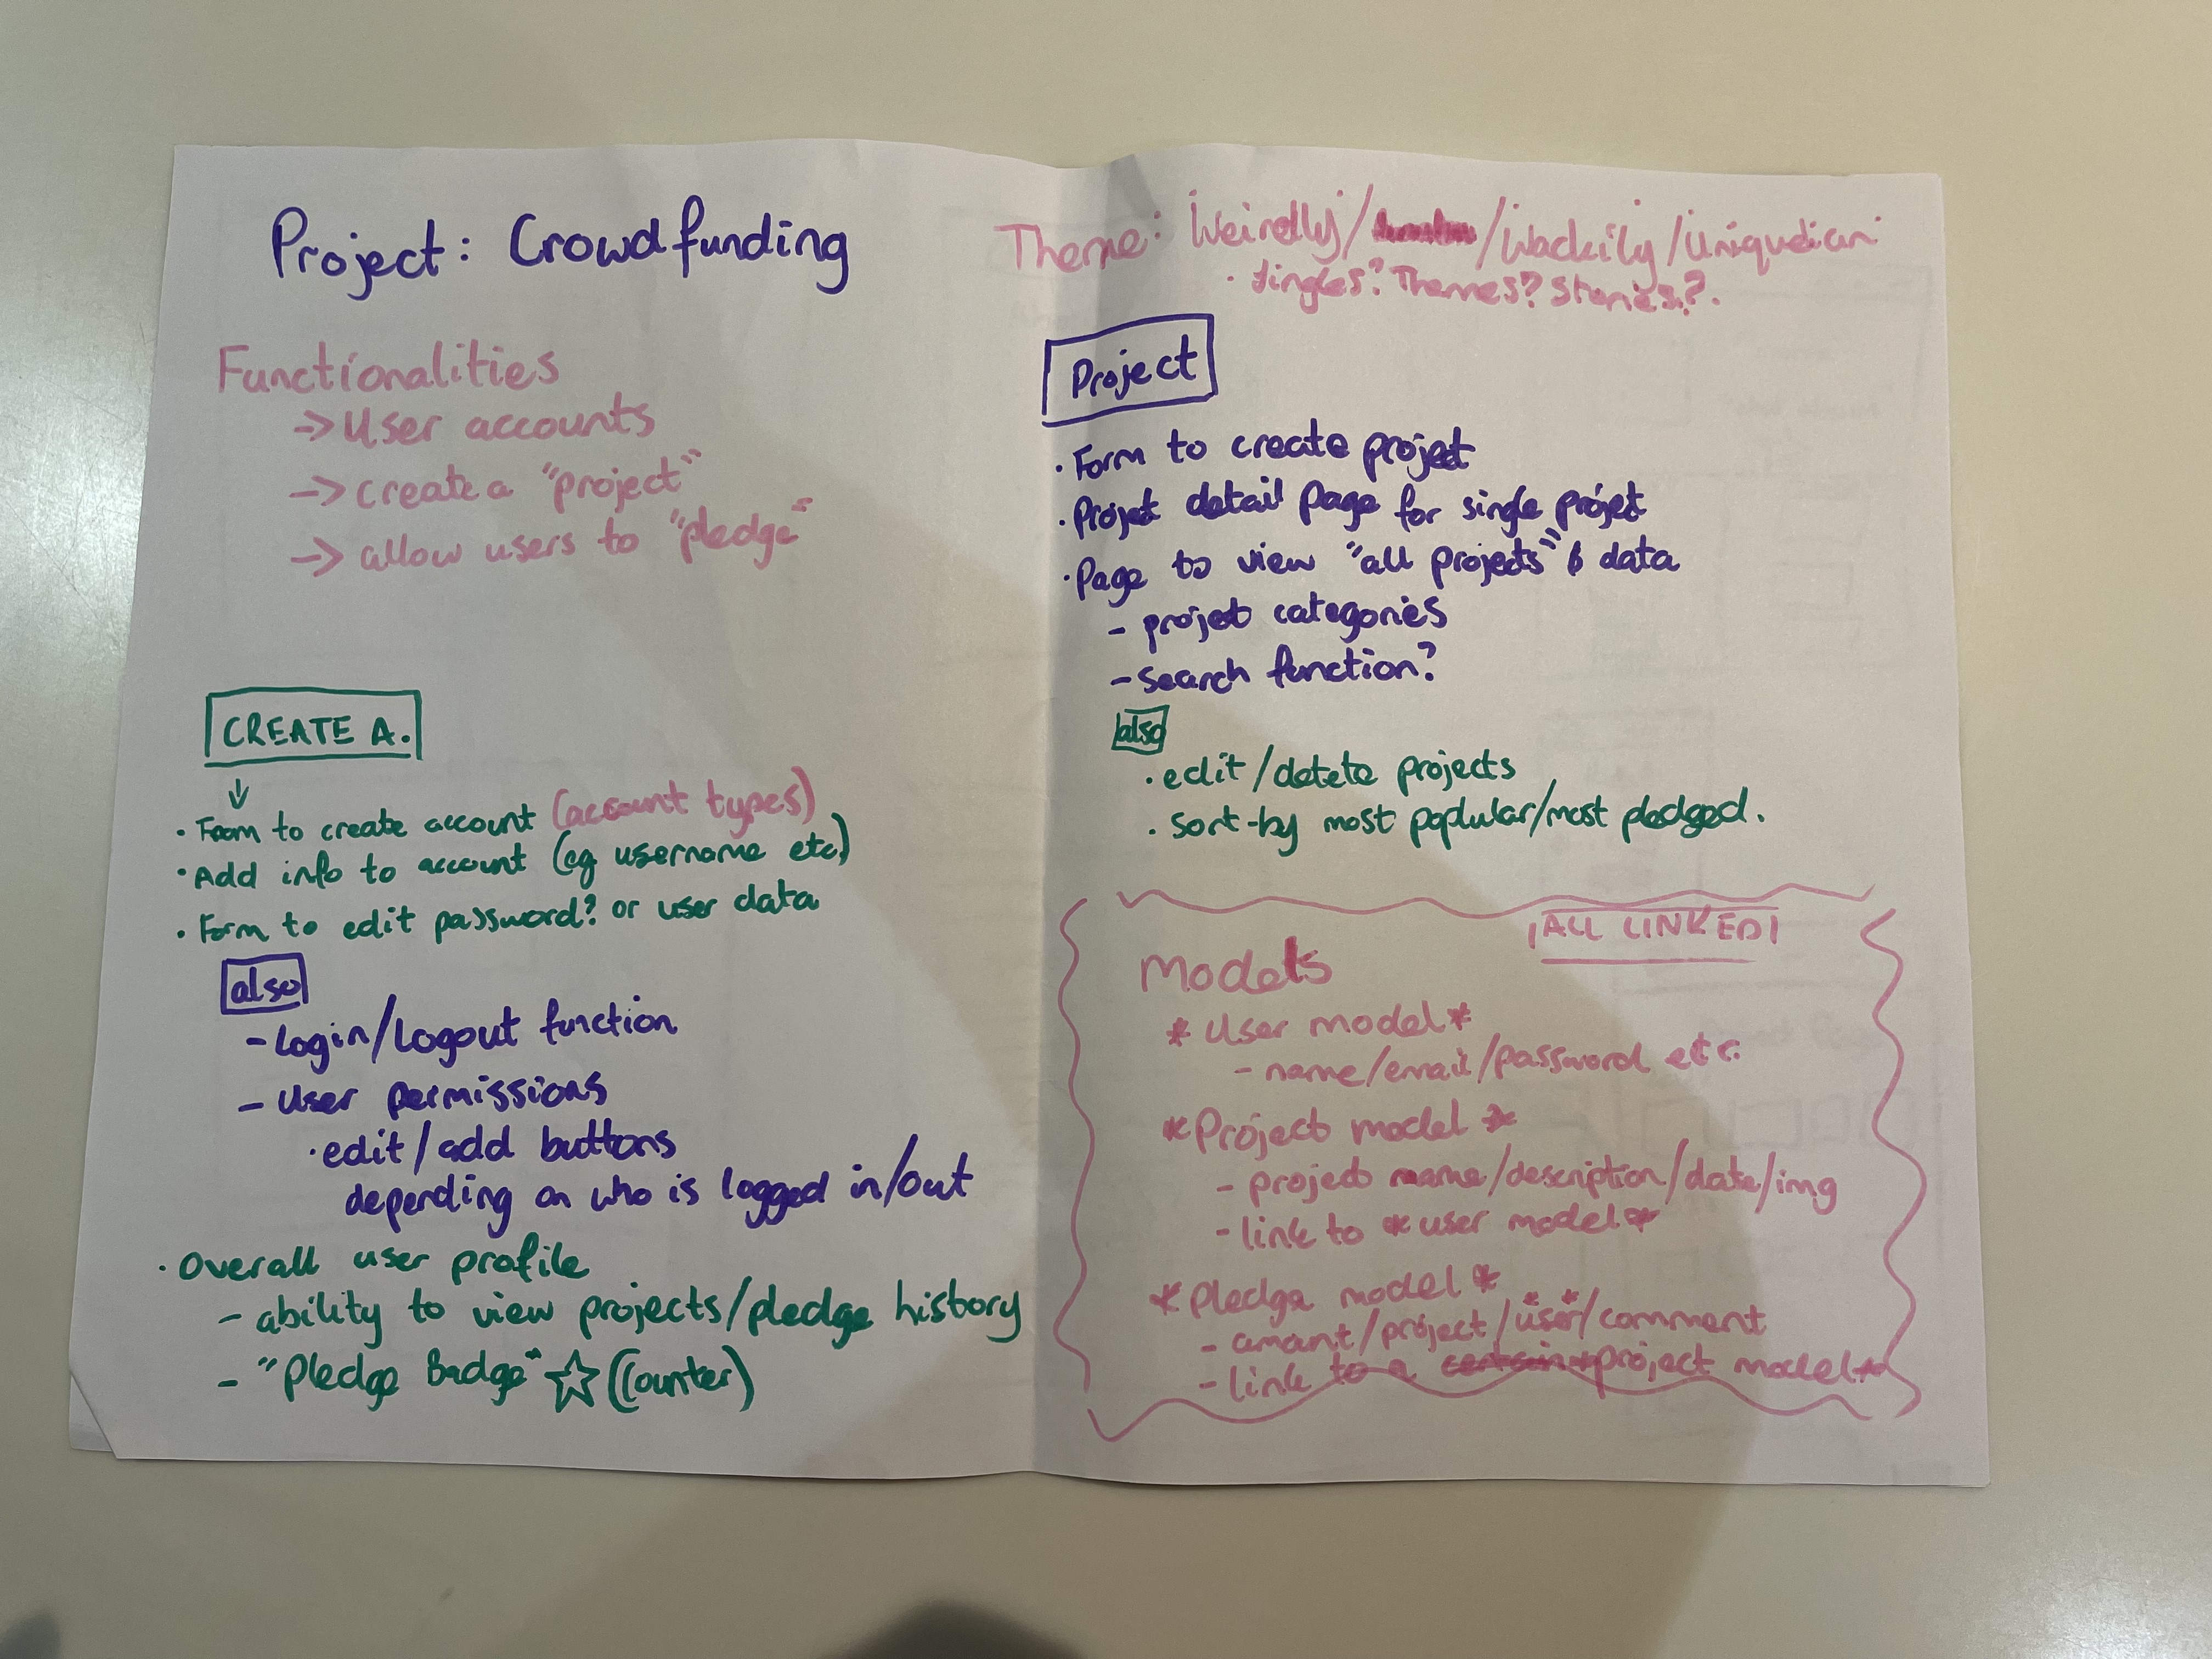 Project: Crowdfunding
Functionalities
→ User accounts
→ create a "project"
→ allow users to "pledge"
CREATE A.
↓
• Form to create account (account types)
• Add info to account (eg username etc)
• Form to edit password? or user data
also
- Login/Logout function
- User permissions
• edit/add buttons
depending on who is logged in/out
• Overall user profile
- ability to view projects/pledge history
- "Pledge Badge" ☆ (Counter)
Theme: Weirdly/ /Wackily/Uniqudian
• Jingles? Themes? Stories?.
Project
• Form to create project
• Projet detail page for single projet
• Page to view "all projects" & data
- project categories
- Search function?
also
• edit/delete projects
• sort-by most poplular/most pledged.
ALL LINKED
Models
* User model *
- name/email/password etc.
* Project model *
- project name/description/date/img
- link to * user model *
* Pledge model *
- amount/project/*user*/comment
- link to a certain *project model*